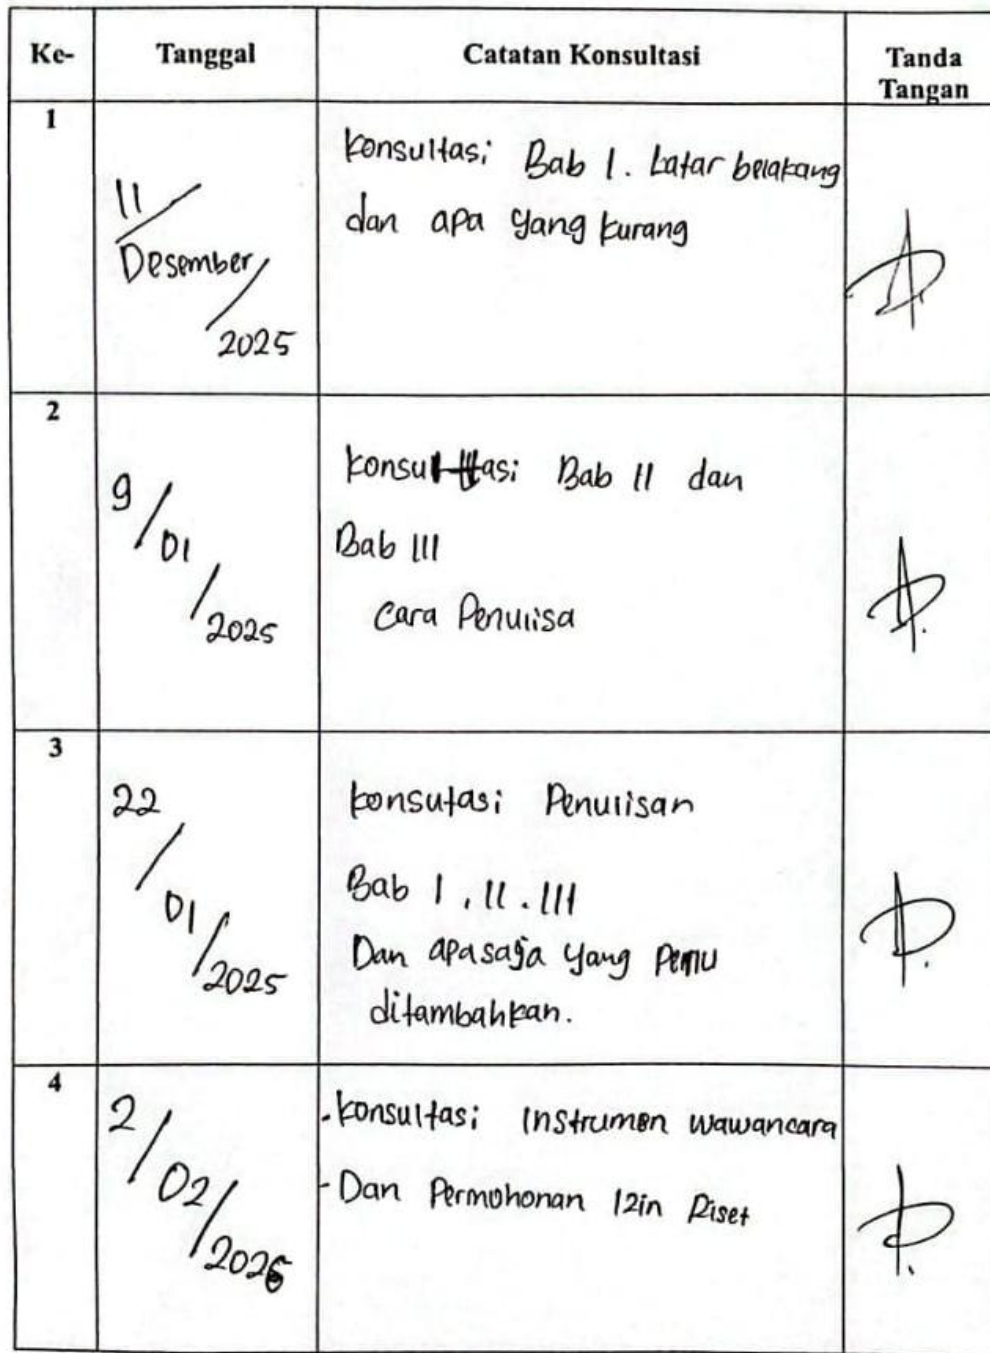 Ke- Tanggal Catatan Konsultasi Tanda Tangan
1
11/Desember/2025
konsultasi; Bab I. Latar belakang
dan apa yang kurang
2
9/01/2025
konsultasi; Bab II dan
Bab III
cara Penulisa
3
22/01/2025
konsutasi; Penulisan
Bab I, II. III
Dan apasaja yang perlu
ditambahkan.
4
2/02/2026
- konsultasi; Instrumen wawancara
- Dan Permohonan Izin Riset